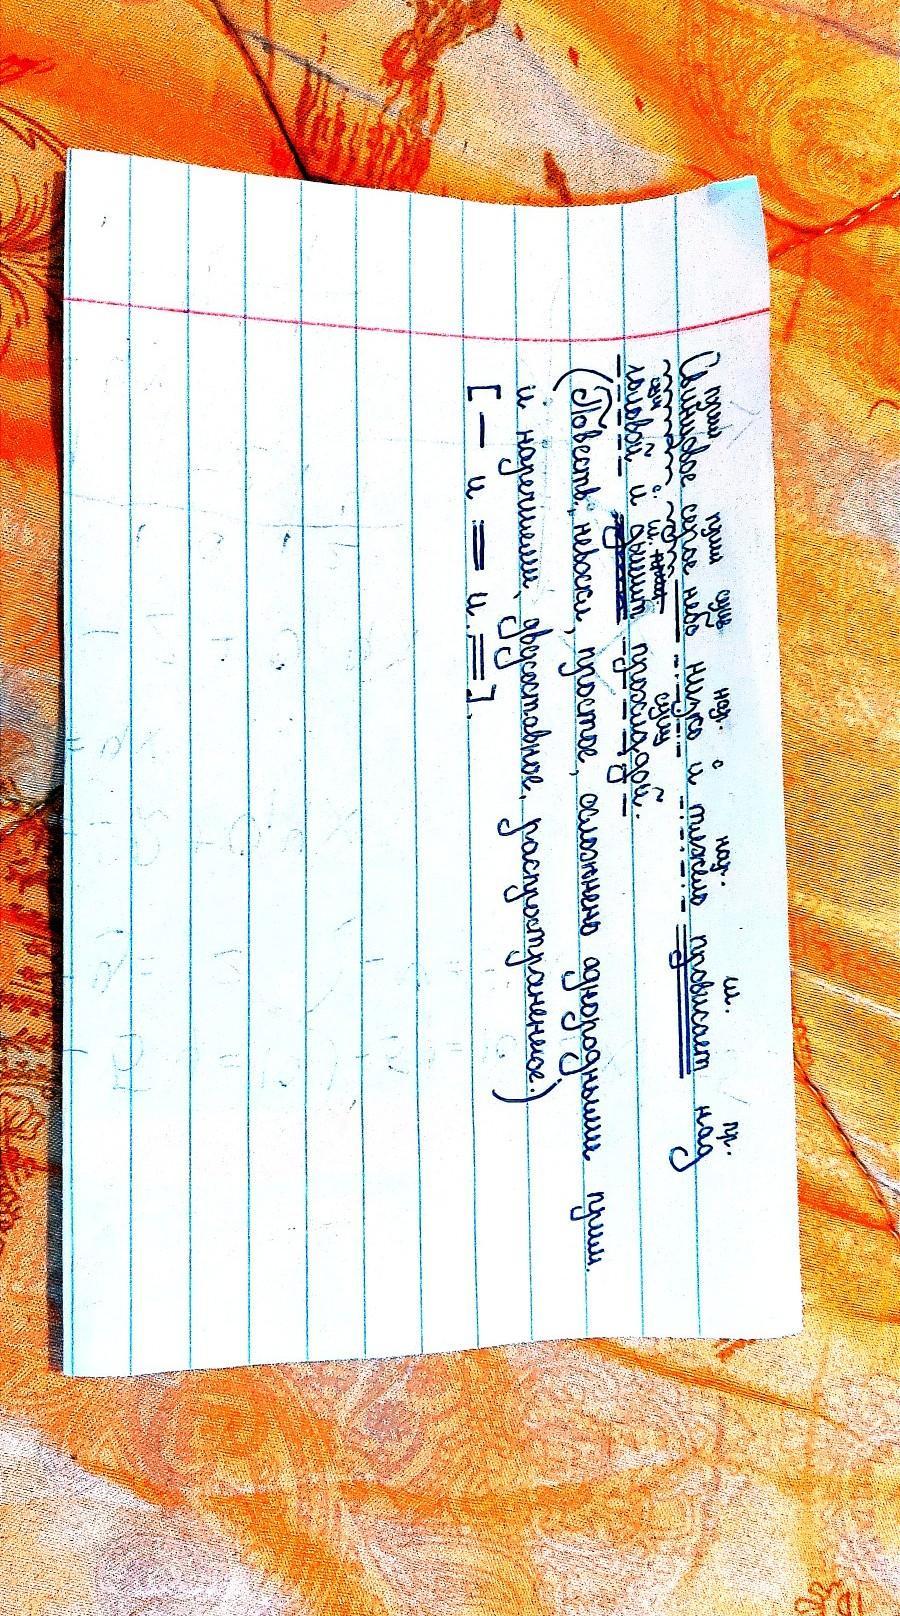 прил прил сущ нар. с нар. гл. пр.
Свинцовое серое небо низко и тяжело провисает над
сущ с. гл. сущ
головой и дышит прохладой.
(Повеств, невоскл, простое, осложнено однородными прил.
и наречиями, двусоставное, распространенное.)
[ — и = и = ].